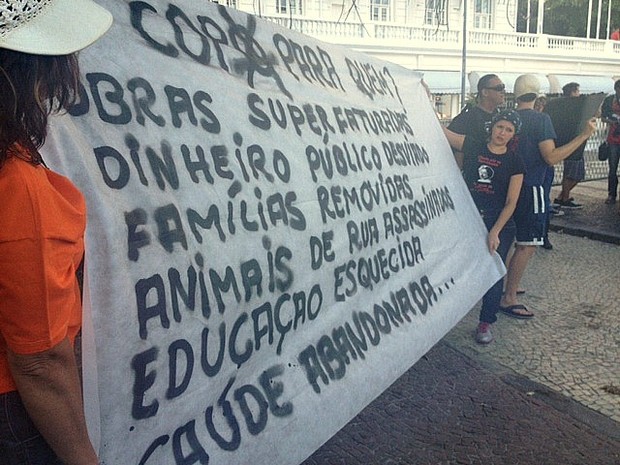 COPA PARA QUEM?
OBRAS SUPERFATURADAS
DINHEIRO PÚBLICO DESVIADO
FAMÍLIAS REMOVIDAS
ANIMAIS DE RUA ASSASSINADOS
EDUCAÇÃO ESQUECIDA
SAÚDE ABANDONADA...